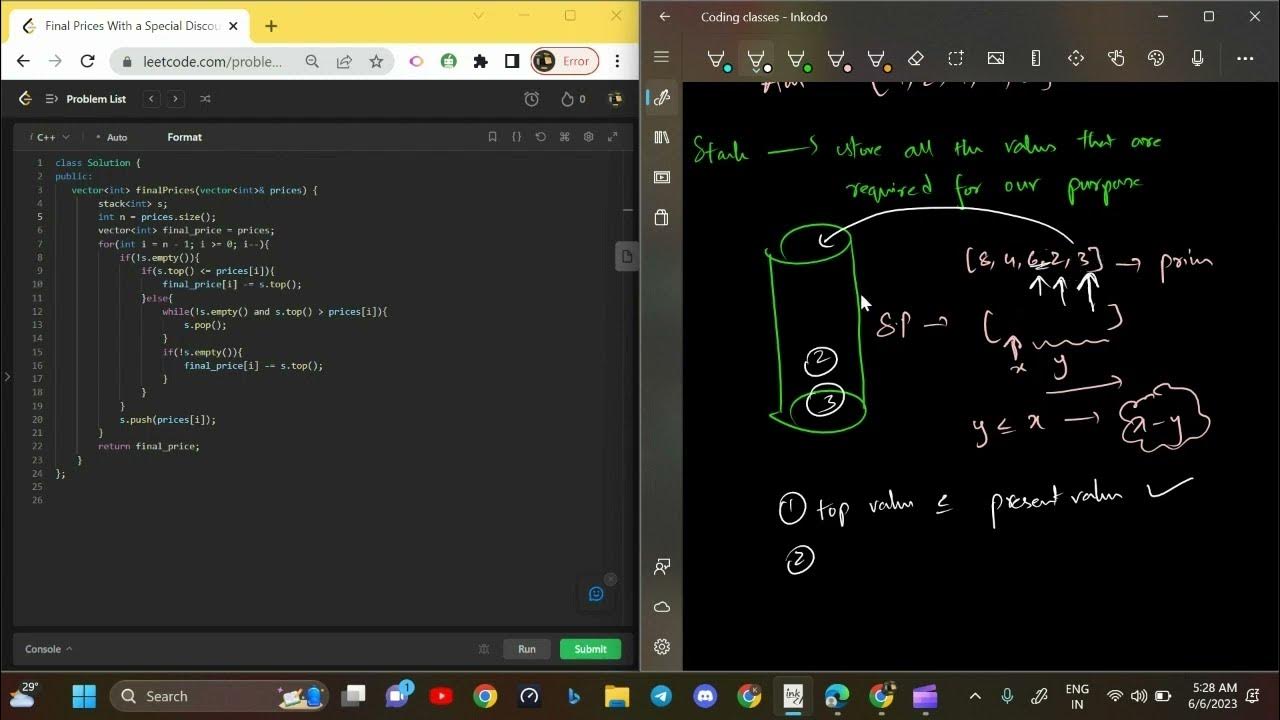 Final Prices With a Special Discou
leetcode.com/proble...
Error
Problem List
0
C++
Auto
Format
1 class Solution {
2 public:
3 vector<int> finalPrices(vector<int>& prices) {
4 stack<int> s;
5 int n = prices.size();
6 vector<int> final_price = prices;
7 for(int i = n - 1; i >= 0; i--){
8 if(!s.empty()){
9 if(s.top() <= prices[i]){
10 final_price[i] -= s.top();
11 }else{
12 while(!s.empty() and s.top() > prices[i]){
13 s.pop();
14 }
15 if(!s.empty()){
16 final_price[i] -= s.top();
17 }
18 }
19 }
20 s.push(prices[i]);
21 }
22 return final_price;
23 }
24 };
25
26
Console
Run
Submit
Coding classes - Inkodo
Stack → store all the values that are
required for our purpose
[8, 4, 6, 2, 3] →
S.P → [ ]
x y
2
3
y ≤ x → x - y
① top value ≤ present value ✓
②
29°
Search
1
ink
ENG
IN
5:28 AM
6/6/2023